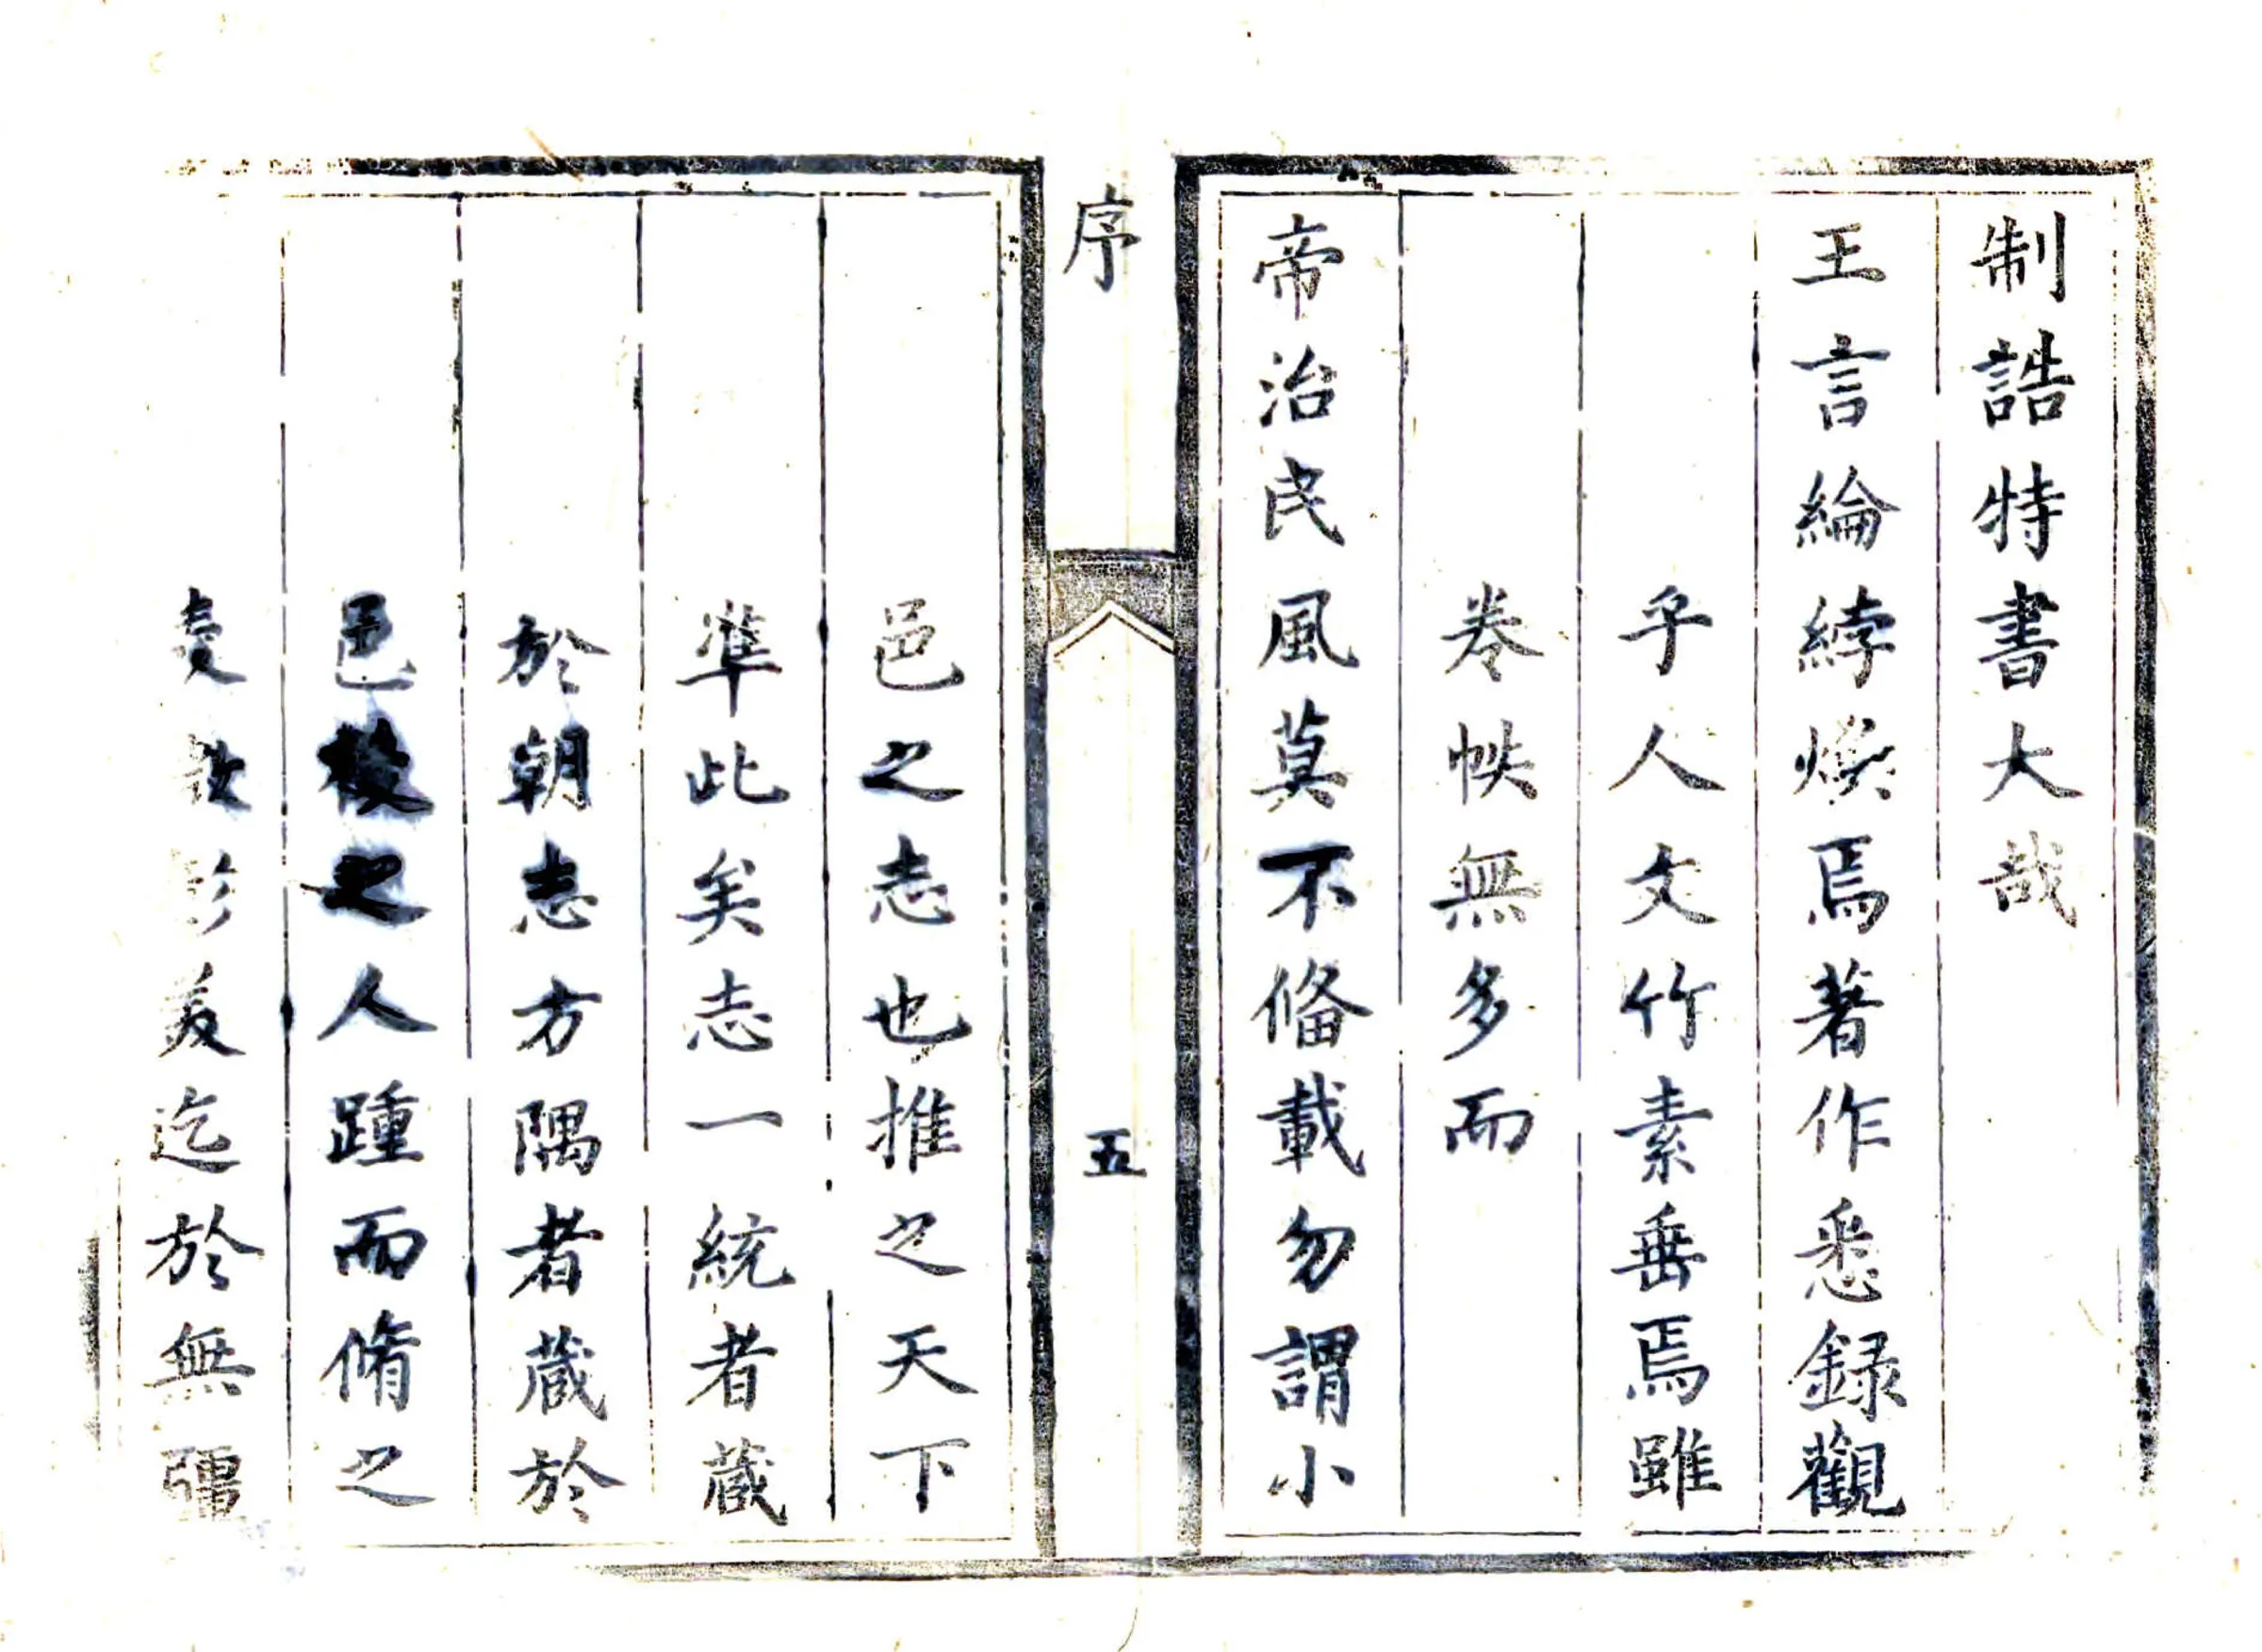 制誥特書大哉
王言綸綍煥焉著作悉録觀
乎人文竹素垂焉雖
卷帙無多而
帝治民風莫不備載勿謂小
序
五
邑之志也推之天下
準此矣志一統者蔵
於朝志方隅者蔵於
邑後之人踵而脩之
美迄於無疆